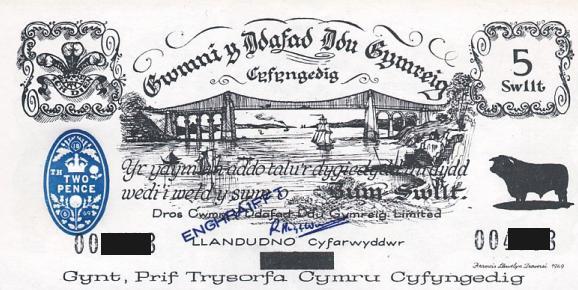 Gwmni y Ddafad Ddu Gymreig
Cyfyngedig
5
Swllt
Yr ydym yn addo talu'r dygiedydd
wedi'i weld y swm o Pum Swllt.
TWO
PENCE
Dros Cwmni y Ddafad Ddu Gymreig Limited
ENGHRAIFFT
00 3
LLANDUDNO Cyfarwyddwr
00 3
1969
Gynt, Prif Trysorfa Cymru Cyfyngedig